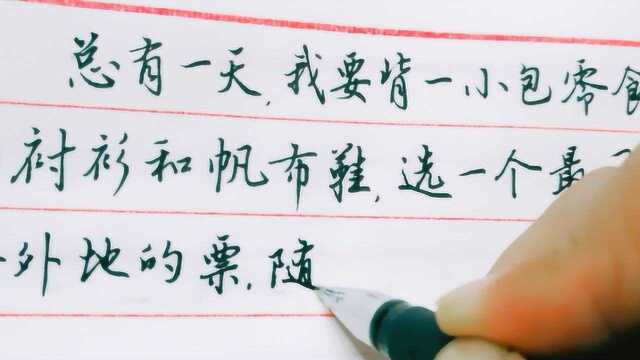 总有一天,我要背一小包零食
衬衫和帆布鞋,选一个最
外地的票,随